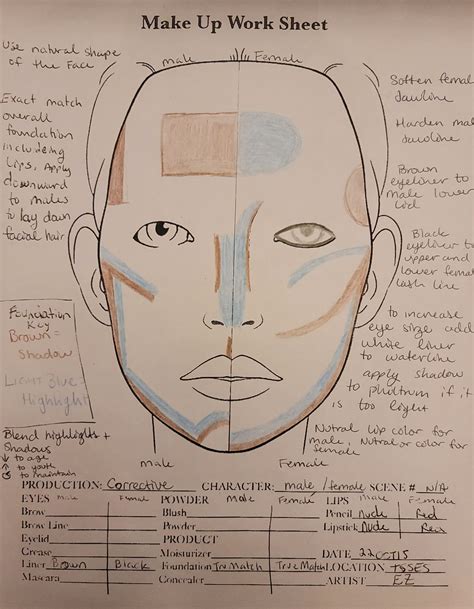 Make Up Work Sheet
male
Female
Use natural shape
of the Face
Exact match
overall
foundation
including
Lips, Apply
downward
to males
to lay down
facial hair
Foundation
Key
Brown =
Shadow
Blue =
Highlight
Blend highlights +
Shadows
↓ to age
↑ to youth
to maintain
Soften femal
Jawline
Harden mal
Jawline
Brown
eyeliner to
male lower
lid
Black
eyeliner to
upper and
lower female
lash line
to increase
eye size add
white liner
to waterline
apply shadow
to philtrum if it
is too light
Nutral lip color for
male, Nutral or color for
female
male
Female
PRODUCTION: Corrective CHARACTER: male/female SCENE # N/A
EYES Male Female POWDER Male Female LIPS Male Female
Brow Blush Pencil Nude Red
Brow Line Powder Lipstick Nude Red
Eyelid PRODUCT
Crease Moisturizer DATE 22OCT15
Liner Brown Black Foundation Tru Match True Match LOCATION TGSES
Mascara Concealer ARTIST EZ